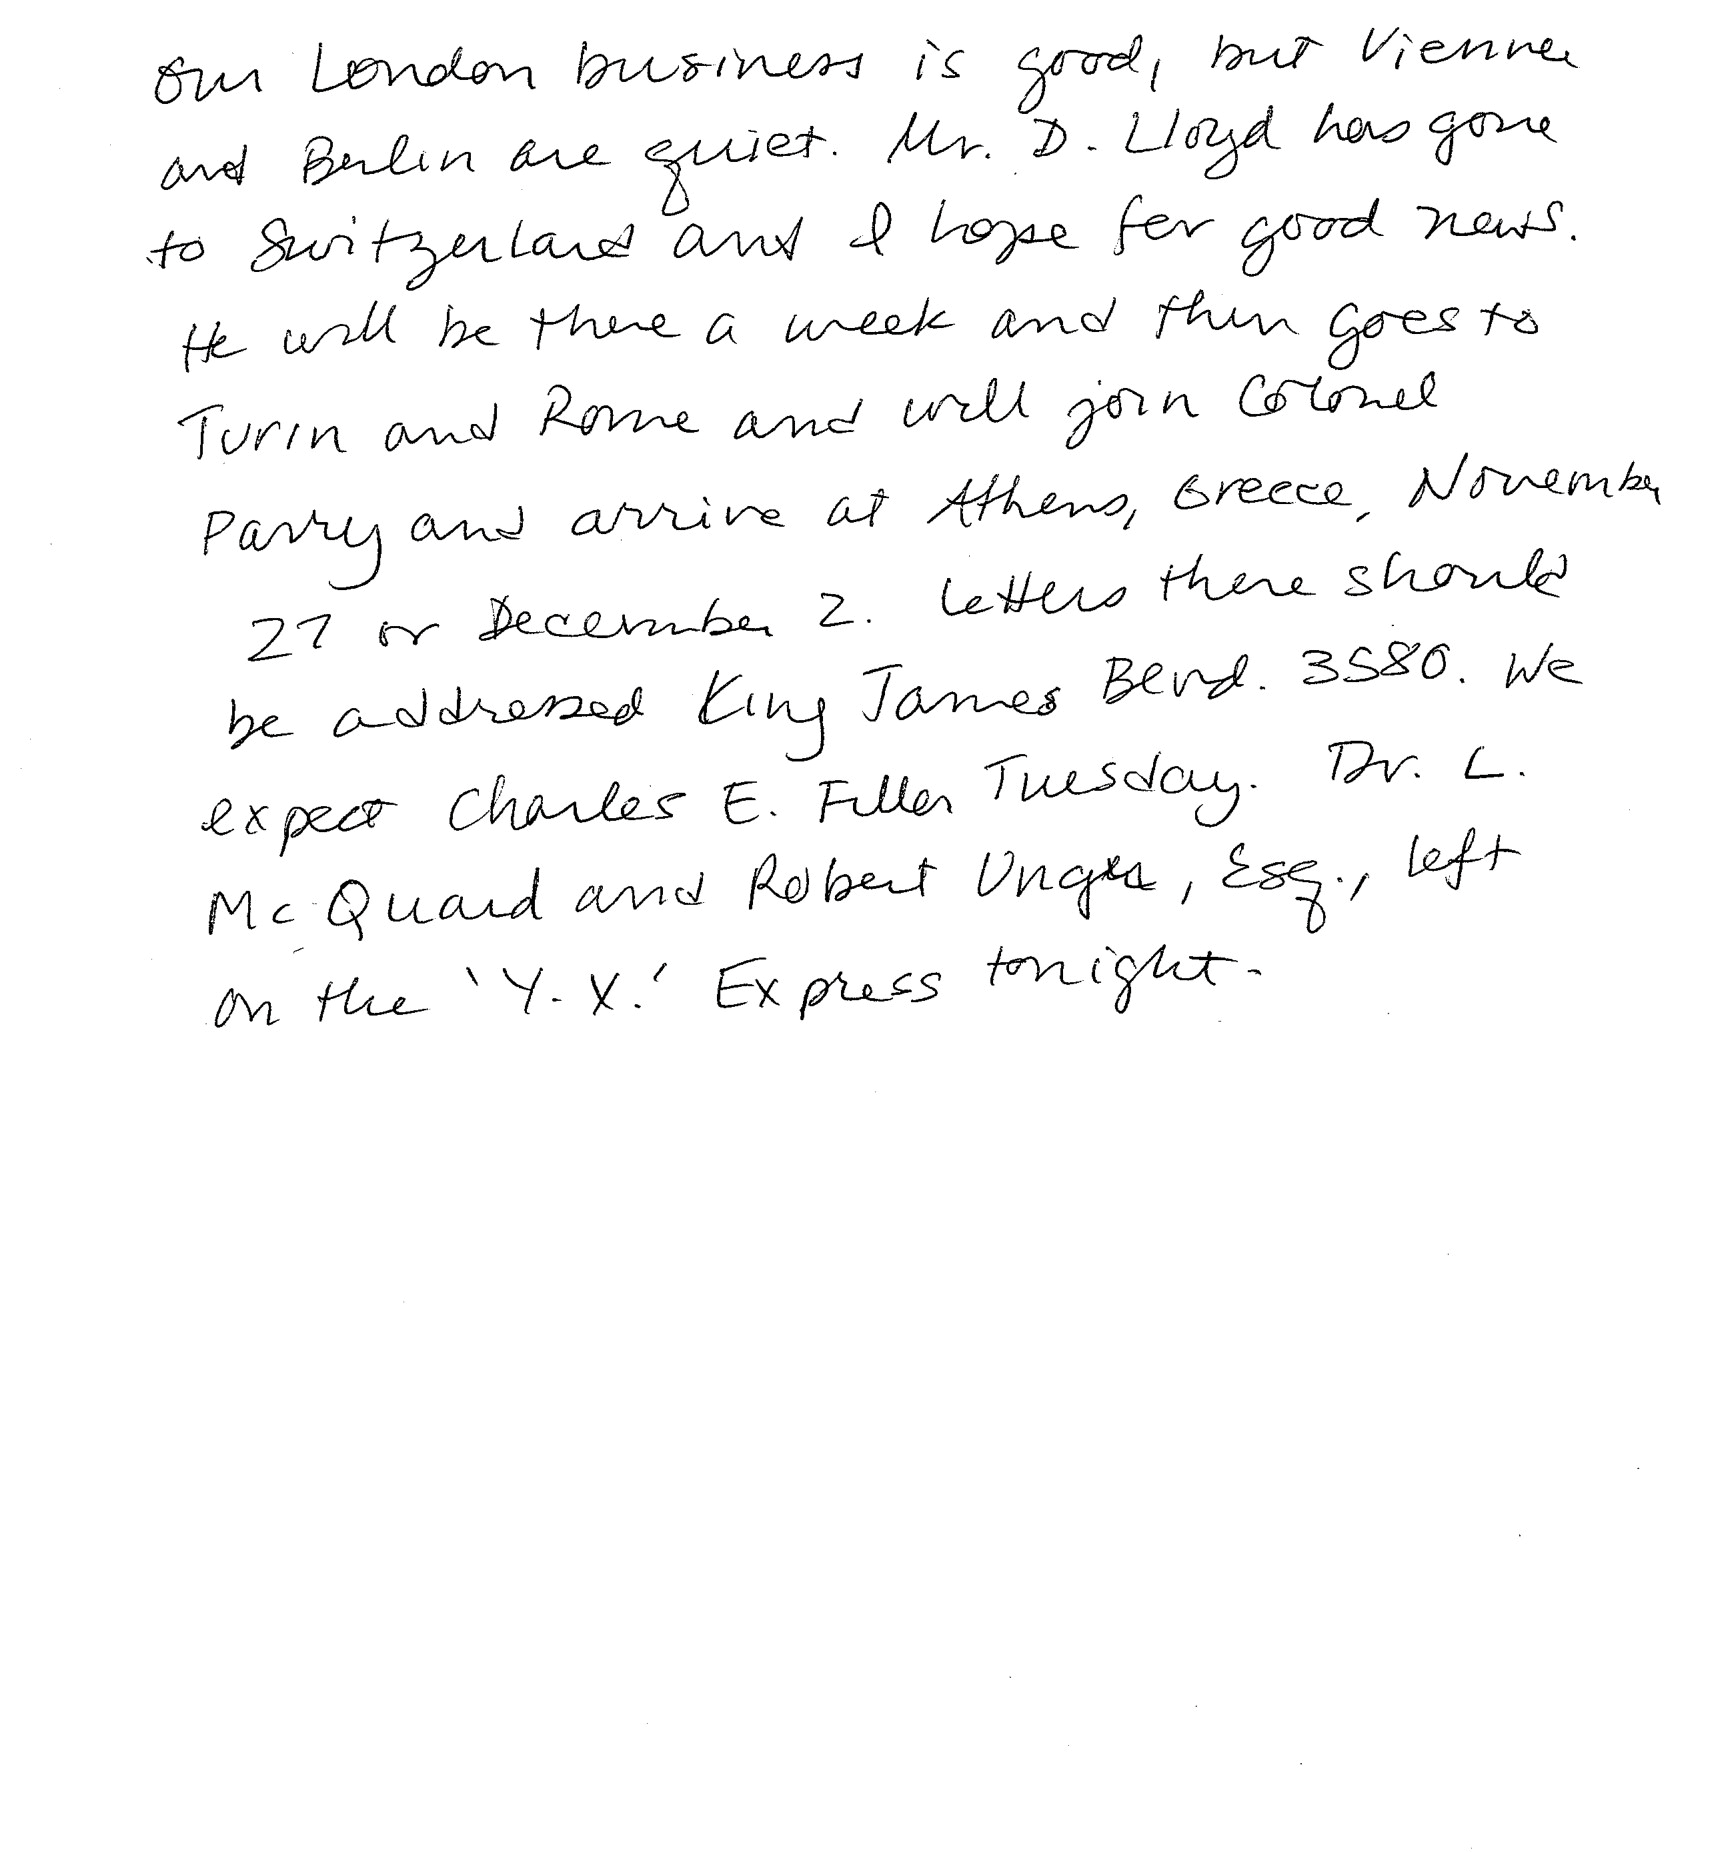 Our London business is good, but Vienna
and Berlin are quiet. Mr. D. Lloyd has gone
to Switzerland and I hope for good news.
He will be there a week and then goes to
Turin and Rome and will join Colonel
Parry and arrive at Athens, Greece, November
27 or December 2. Letters there should
be addressed King James Blvd. 3580. We
expect Charles E. Fuller Tuesday. Dr. L.
McQuaid and Robert Unger, Esq., left
on the 'Y.X.' Express tonight.